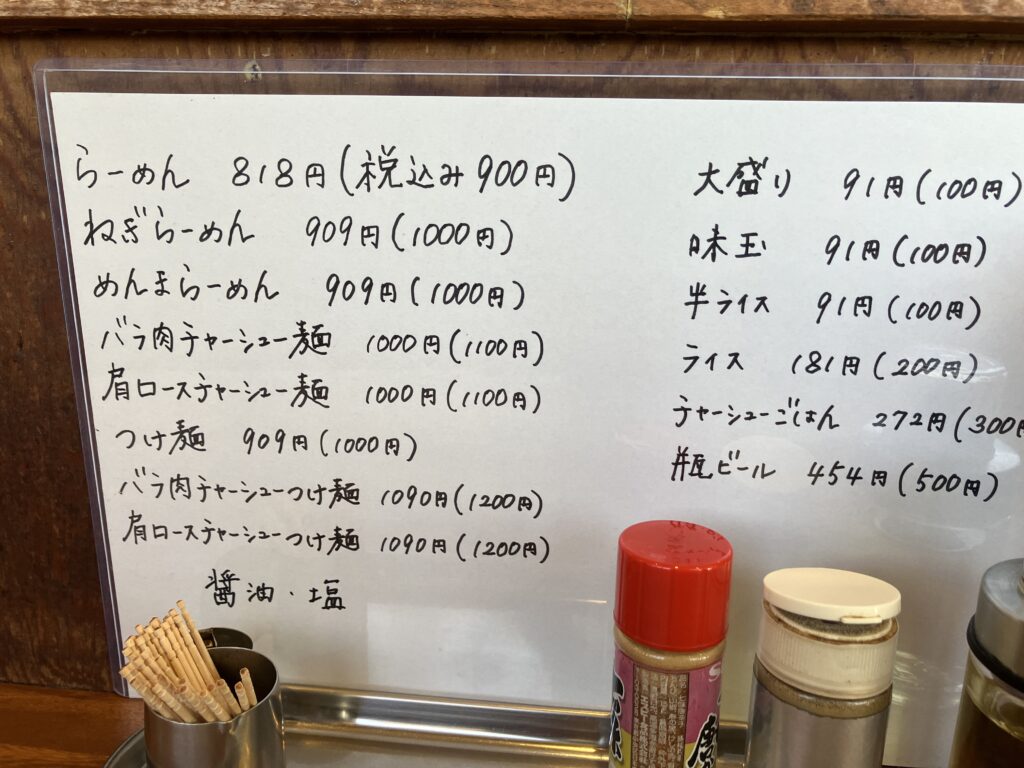 らーめん 818円(税込み900円)
ねぎらーめん 909円(1000円)
めんまらーめん 909円(1000円)
バラ肉チャーシュー麺 1000円(1100円)
肩ロースチャーシュー麺 1000円(1100円)
つけ麺 909円(1000円)
バラ肉チャーシューつけ麺 1090円(1200円)
肩ロースチャーシューつけ麺 1090円(1200円)
醤油・塩
大盛り 91円(100円)
味玉 91円(100円)
半ライス 91円(100円)
ライス 181円(200円)
チャーシューごはん 272円(300円
瓶ビール 454円(500円)